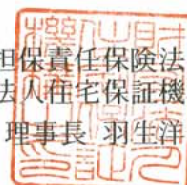 担保責任保険法
法人住宅保証機
理事長 羽生洋